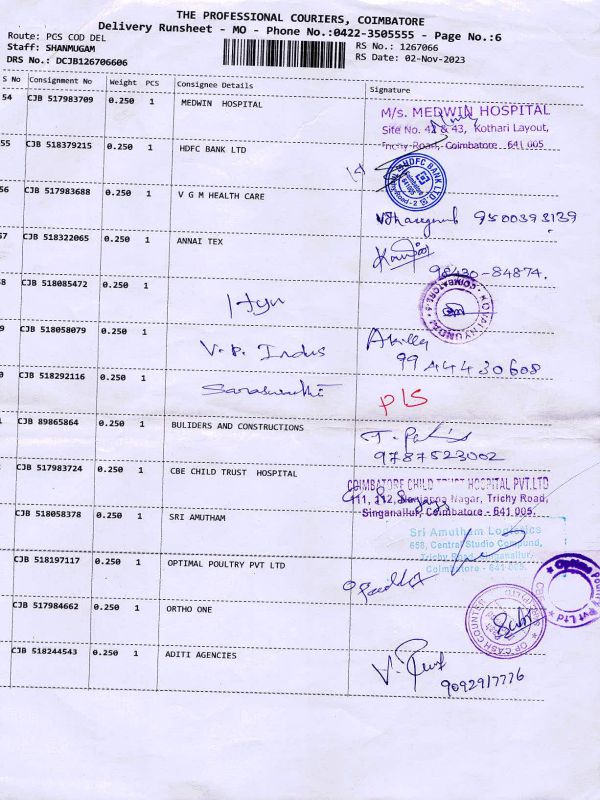 THE PROFESSIONAL COURIERS, COIMBATORE
Delivery Runsheet - MO - Phone No.:0422-3505555 - Page No.:6
Route: PCS COD DEL
RS No.: 1267066
Staff: SHANMUGAM
RS Date: 02-Nov-2023
DRS No.: DCJB126706606
S No Consignment No Weight PCS Consignee Details Signature
54 CJB 517983709 0.250 1 MEDWIN HOSPITAL
M/s. MEDWIN HOSPITAL
Site No. 42 & 43, Kothari Layout,
Trichy Road, Coimbatore 641 005
55 CJB 518379215 0.250 1 HDFC BANK LTD
HDFC BANK LTD
56 CJB 517983688 0.250 1 V G M HEALTH CARE
9500393139
57 CJB 518322065 0.250 1 ANNAI TEX
98430-84874.
8 CJB 518085472 0.250 1
KOVAI HYUNDAI COIMBATORE
9 CJB 518058079 0.250 1 V.P. Indus
99 44430608
0 CJB 518292116 0.250 1 Saraswathi
PLS
1 CJB 89865864 0.250 1 BULIDERS AND CONSTRUCTIONS
9787523002
CJB 517983724 0.250 1 CBE CHILD TRUST HOSPITAL
COIMBATORE CHILD TRUST HOSPITAL PVT.LTD
111, 112, Nanjappa Nagar, Trichy Road,
Singanallur, Coimbatore - 641 005.
CJB 518058378 0.250 1 SRI AMUTHAM
Sri Amutham Logistics
658, Central Studio Compund,
Trichy Road, Singanallur,
Coimbatore - 641 005.
CJB 518197117 0.250 1 OPTIMAL POULTRY PVT LTD
CJB 517984662 0.250 1 ORTHO ONE
CJB 518244543 0.250 1 ADITI AGENCIES
9092917776